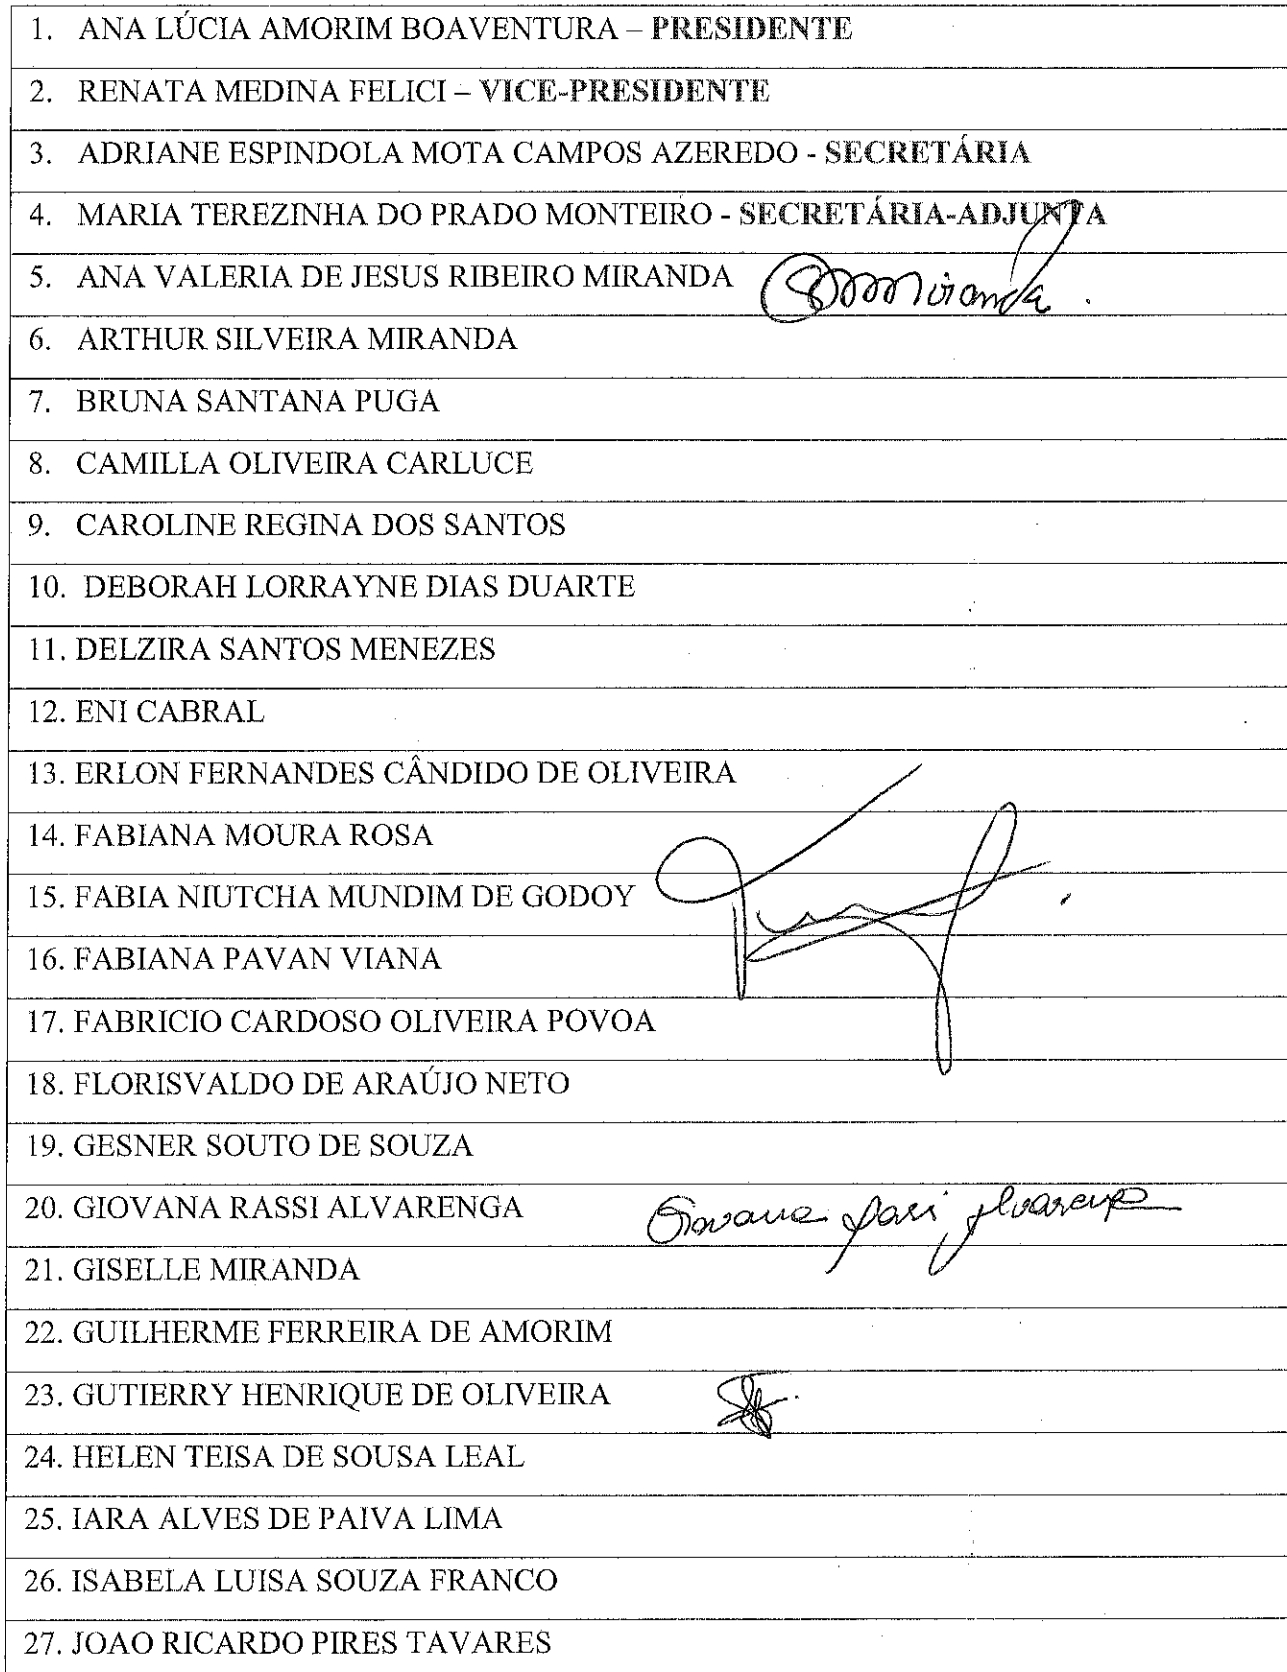 1. ANA LÚCIA AMORIM BOAVENTURA – PRESIDENTE
2. RENATA MEDINA FELICI – VICE-PRESIDENTE
3. ADRIANE ESPINDOLA MOTA CAMPOS AZEREDO - SECRETÁRIA
4. MARIA TEREZINHA DO PRADO MONTEIRO - SECRETÁRIA-ADJUNTA
5. ANA VALERIA DE JESUS RIBEIRO MIRANDA Miranda.
6. ARTHUR SILVEIRA MIRANDA
7. BRUNA SANTANA PUGA
8. CAMILLA OLIVEIRA CARLUCE
9. CAROLINE REGINA DOS SANTOS
10. DEBORAH LORRAYNE DIAS DUARTE
11. DELZIRA SANTOS MENEZES
12. ENI CABRAL
13. ERLON FERNANDES CÂNDIDO DE OLIVEIRA
14. FABIANA MOURA ROSA
15. FABIA NIUTCHA MUNDIM DE GODOY
16. FABIANA PAVAN VIANA
17. FABRICIO CARDOSO OLIVEIRA POVOA
18. FLORISVALDO DE ARAÚJO NETO
19. GESNER SOUTO DE SOUZA
20. GIOVANA RASSI ALVARENGA Giovana Rassi Alvarenga
21. GISELLE MIRANDA
22. GUILHERME FERREIRA DE AMORIM
23. GUTIERRY HENRIQUE DE OLIVEIRA
24. HELEN TEISA DE SOUSA LEAL
25. IARA ALVES DE PAIVA LIMA
26. ISABELA LUISA SOUZA FRANCO
27. JOAO RICARDO PIRES TAVARES